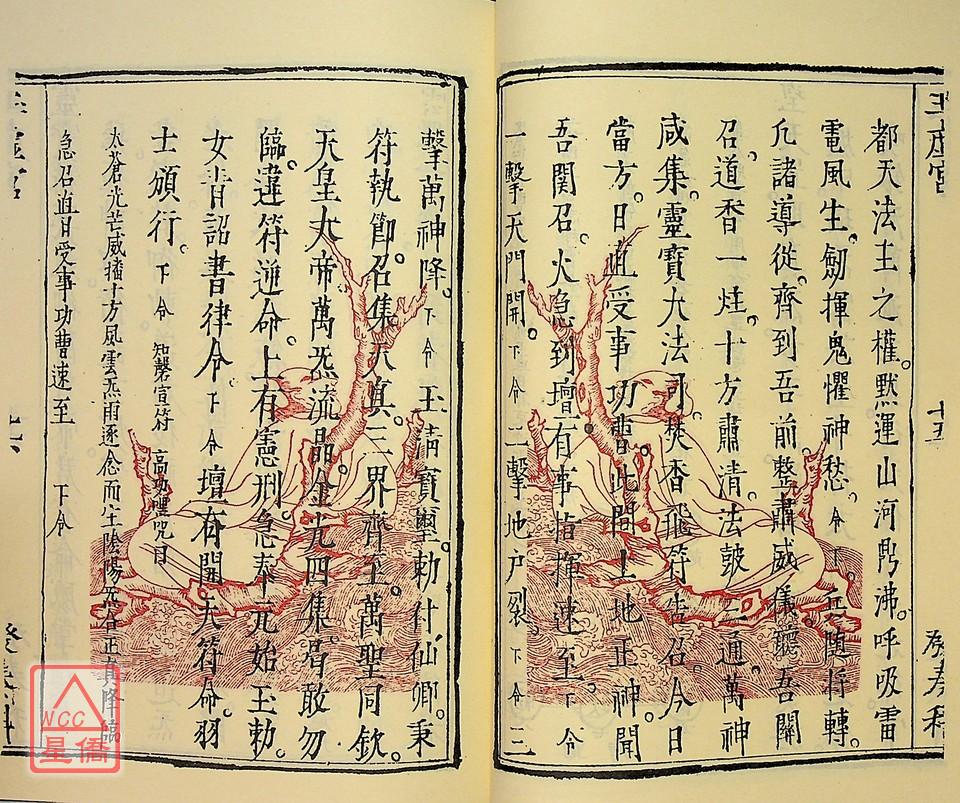 都天法主之權。默運山河鼎沸。呼吸雷
電風生。劍揮鬼懼神愁。令下。兵隨將轉。
凢諸導從。齊到吾前。整肅威儀。聽吾關
召。道香一炷。十方肅清。法鼓三通。萬神
咸集。靈寶大法司。焚香飛符告召。今日
當方。日直受事功曹。此間土地正神。聞
吾關召。火急到壇。有事指揮。速至。下令
一擊天門開。下令二擊地戶裂。下令三
擊萬神降。下令玉清寶璽。勅付仙卿。秉
符執節。召集天真。三界齊至。萬聖同欽。
天皇大帝。萬炁流晶。金光四集。曷敢勿
臨。違符逆命。上有憲刑。急奉元始玉勅。
女青詔書律令。下令壇有開天符命。羽
士頒行。下令 知磬宣符 高功噀咒曰
太蒼光芒威播十方風雲炁雨逐念而生陰陽炁合正真降臨
急召直日受事功曹速至 下令
玉虛宮
十五
發奏科
WCC
星僑